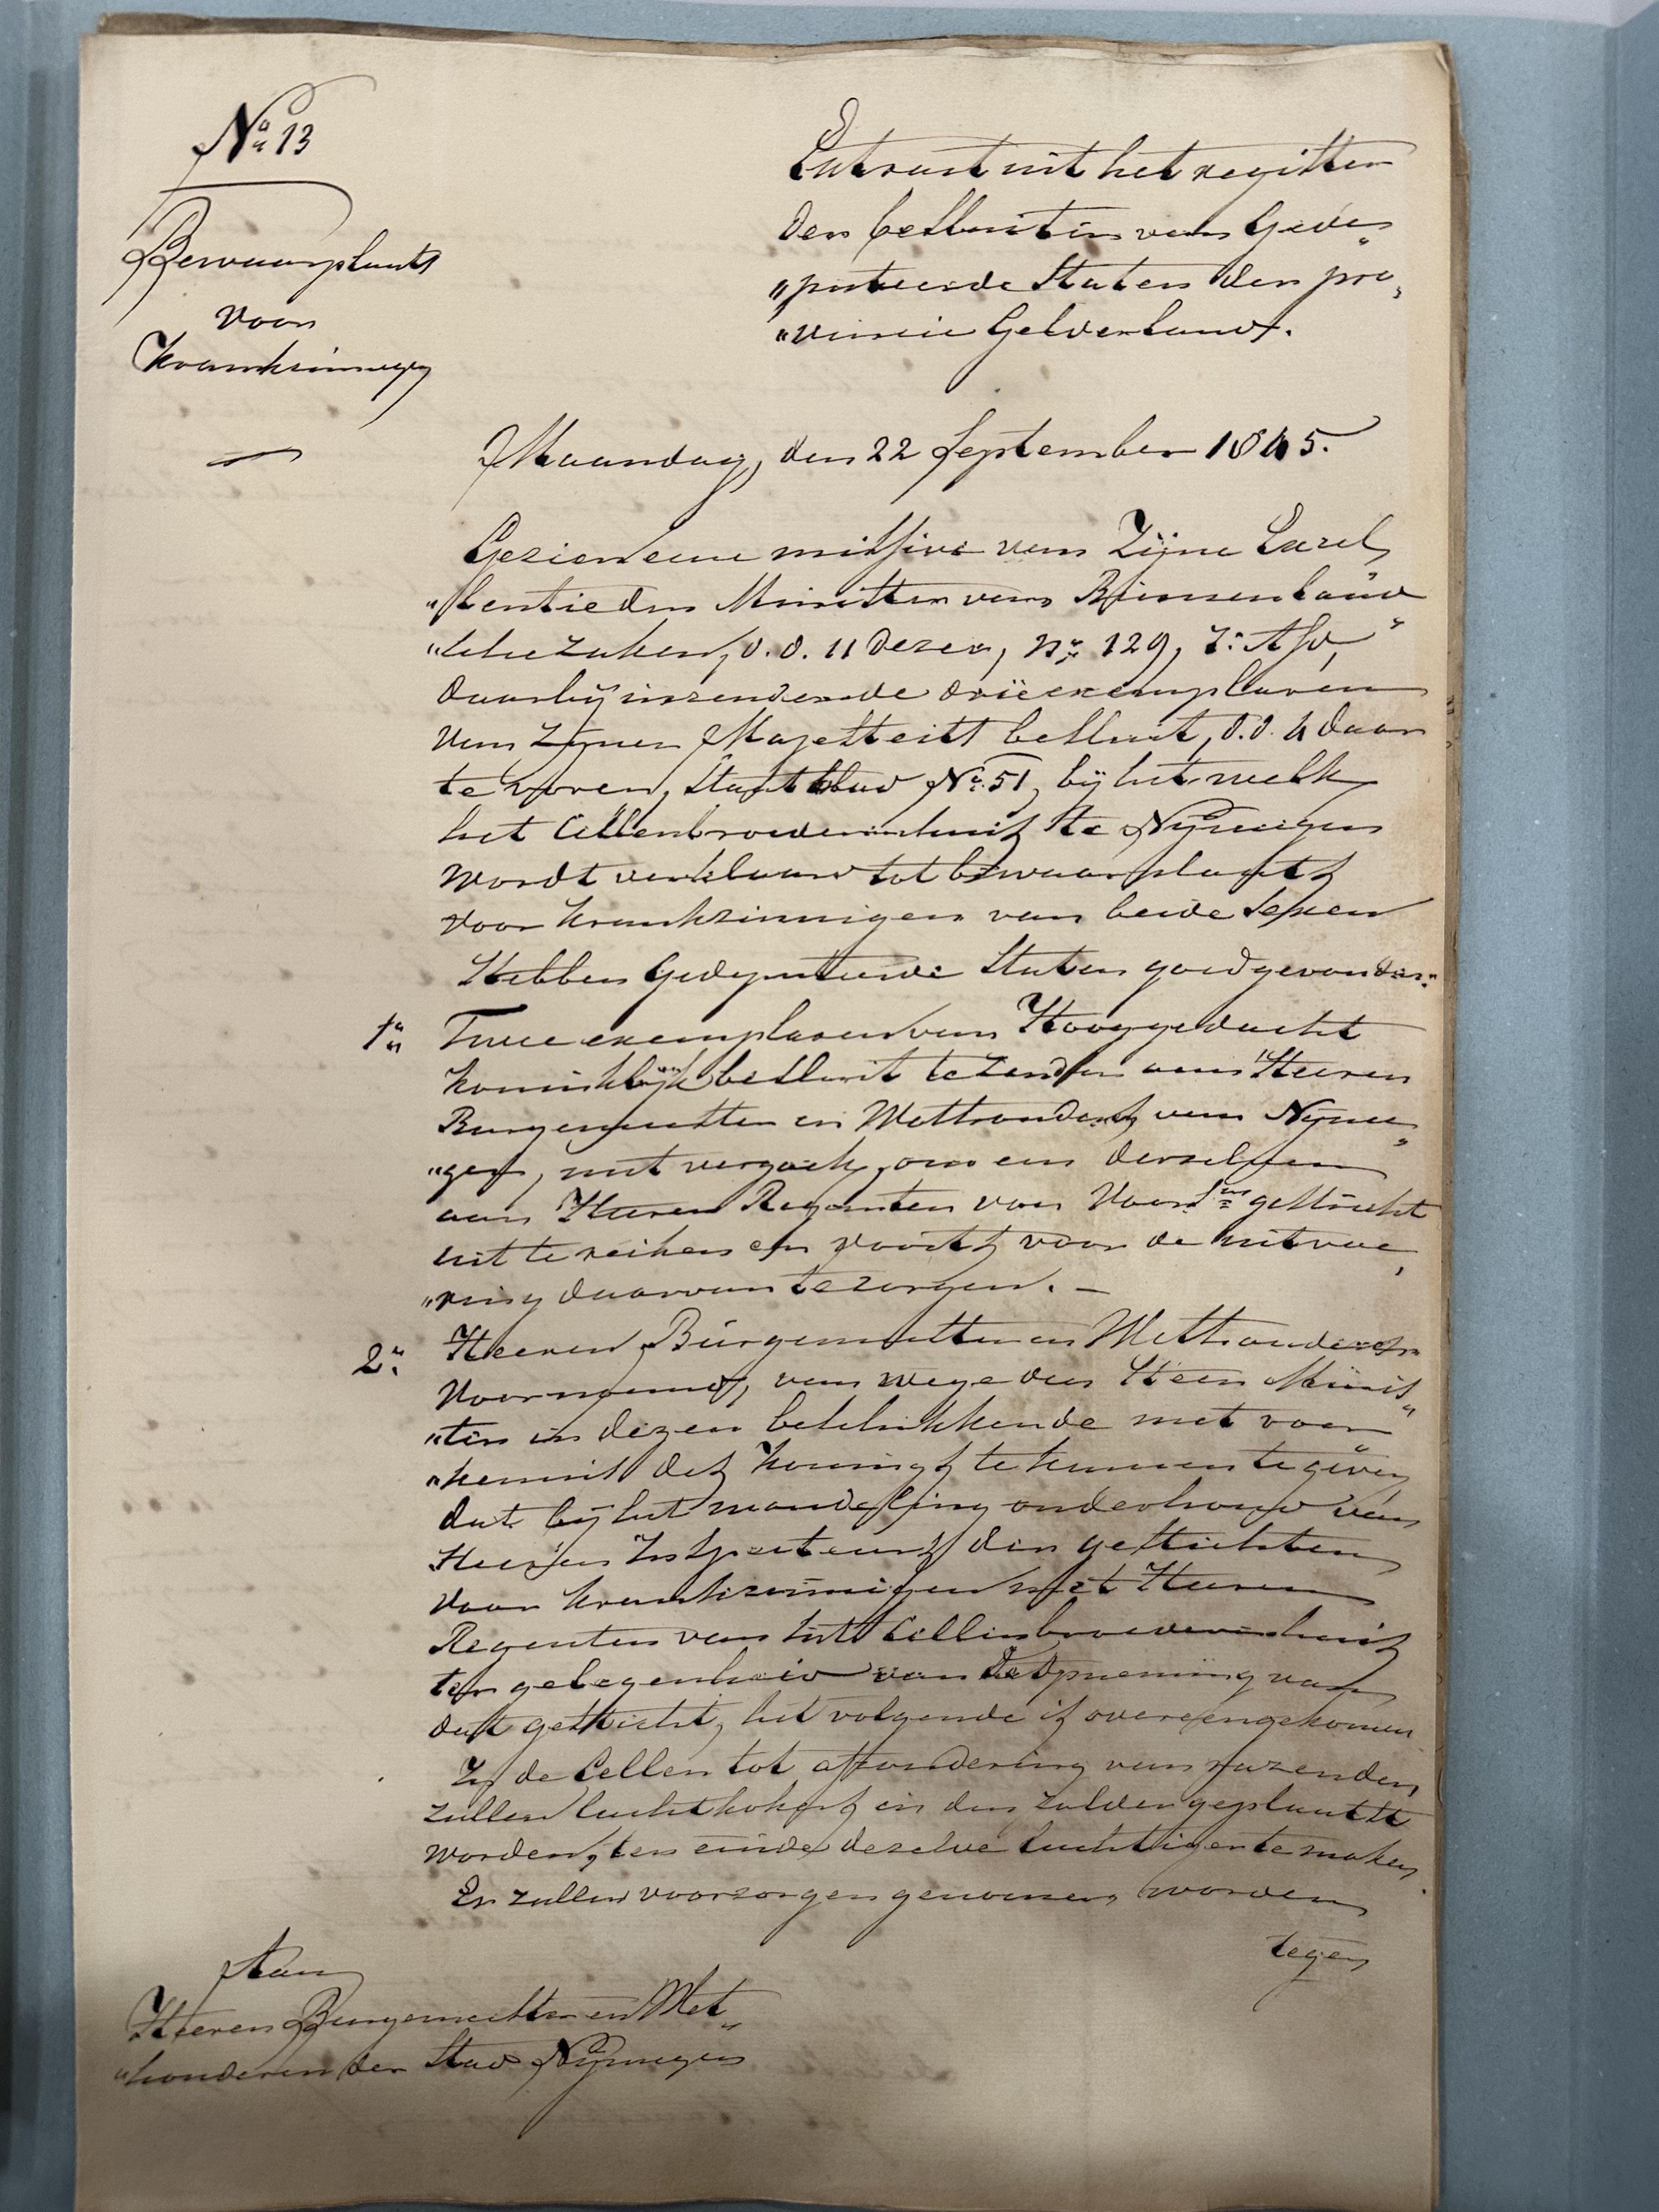 No. 13
Bewaarplaats
voor
Krankzinnigen
Extract uit het register
der besluiten van Gede„
„puteerde Staten der pro„
„vincie Gelderland.
Maandag, den 22 September 1845.
Gezien eene missive van Zijne Excel„
„lentie den Minister van Binnenland„
„sche zaken, d.d. 11 dezer, No. 129, 7e Afd,
daarbij inzendende drie exemplaren
van Zijner Majesteits besluit, d.d. 4 daar
te voren, Staatsblad No. 51, bij het welk
het Cellenbroederenhuis te Nijmegen
wordt verklaard tot bewaarplaats
voor krankzinnigen van beide sexen
Hebben Gedeputeerde Staten goedgevonden:
1o. Twee exemplaren van Hooggedacht
Koninklijk besluit te zenden aan Heeren
Burgemeester en Wethouders van Nijme„
„gen, met verzoek, om een derzelven
aan Heeren Regenten van voorsn. gesticht
uit te reiken en voorts voor de uitvoe„
„ring daarvan te zorgen. –
2o. Heeren Burgemeester en Wethouderen
voornoemd, van wege den Heer Minis„
„ter in dezen beschikkende met voor„
„kennis des Konings te kennen te geven
dat bij het mondeling onderhoud van
Heeren Inspecteurs der gestichten
voor krankzinnigen met Heeren
Regenten van het Cellenbroederenhuis
ter gelegenheid van de opneming van
dat gesticht, het volgende is overeengekomen
In de Cellen tot afzondering van razenden,
zullen luchtkokers in den zolder geplaatst
worden, ten einde dezelve luchtiger te maken,
Er zullen voorzorgen genomen worden
tegen
Aan
Heeren Burgemeester en Wet„
„houderen der Stad Nijmegen